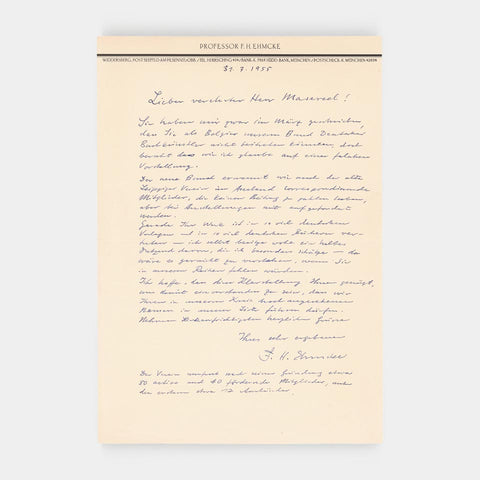 PROFESSOR F. H. EHMCKE
WIDDERSBERG, POST SEEFELD AM PILSENSEE/OBB. / TEL. HERRSCHING / BANK: SÜDD. BANK, MÜNCHEN / POSTSCHECK: MÜNCHEN
31. 7. 1955
Lieber verehrter Herr Masereel!
Sie haben mir zwar im März geschrieben,
dass Sie als Belgier unserem Bund Deutscher
Buchkünstler nicht beitreten könnten, doch
beruht das wie ich glaube auf einer falschen
Vorstellung.
Der neue Bund ernennt wie auch der alte
Leipziger Verein im Ausland correspondierende
Mitglieder, die keinen Beitrag zu zahlen haben,
aber bei Ausstellungen mit aufgefordert
werden.
Gerade Ihr Werk ist in so viel deutschen
Verlagen und in so viel deutschen Büchern ver-
treten — ich selbst besitze wohl ein halbes
Dutzend davon, die ich besonders schätze — da
wäre es garnicht zu verstehen, wenn Sie
in unseren Reihen fehlen würden.
Ich hoffe, dass diese Klarstellung Ihnen genügt,
um damit einverstanden zu sein, dass wir
Ihren in unserem Kreis hoch angesehenen
Namen in unserer Liste führen dürfen.
Nehmen herzlichen Grüsse
Ihres sehr ergebenen
F. H. Ehmcke
Der Verein umfasst seit seiner Gründung etwa
50 active und 40 fördernde Mitglieder, unter
den ersteren etwa 12 Ausländer.